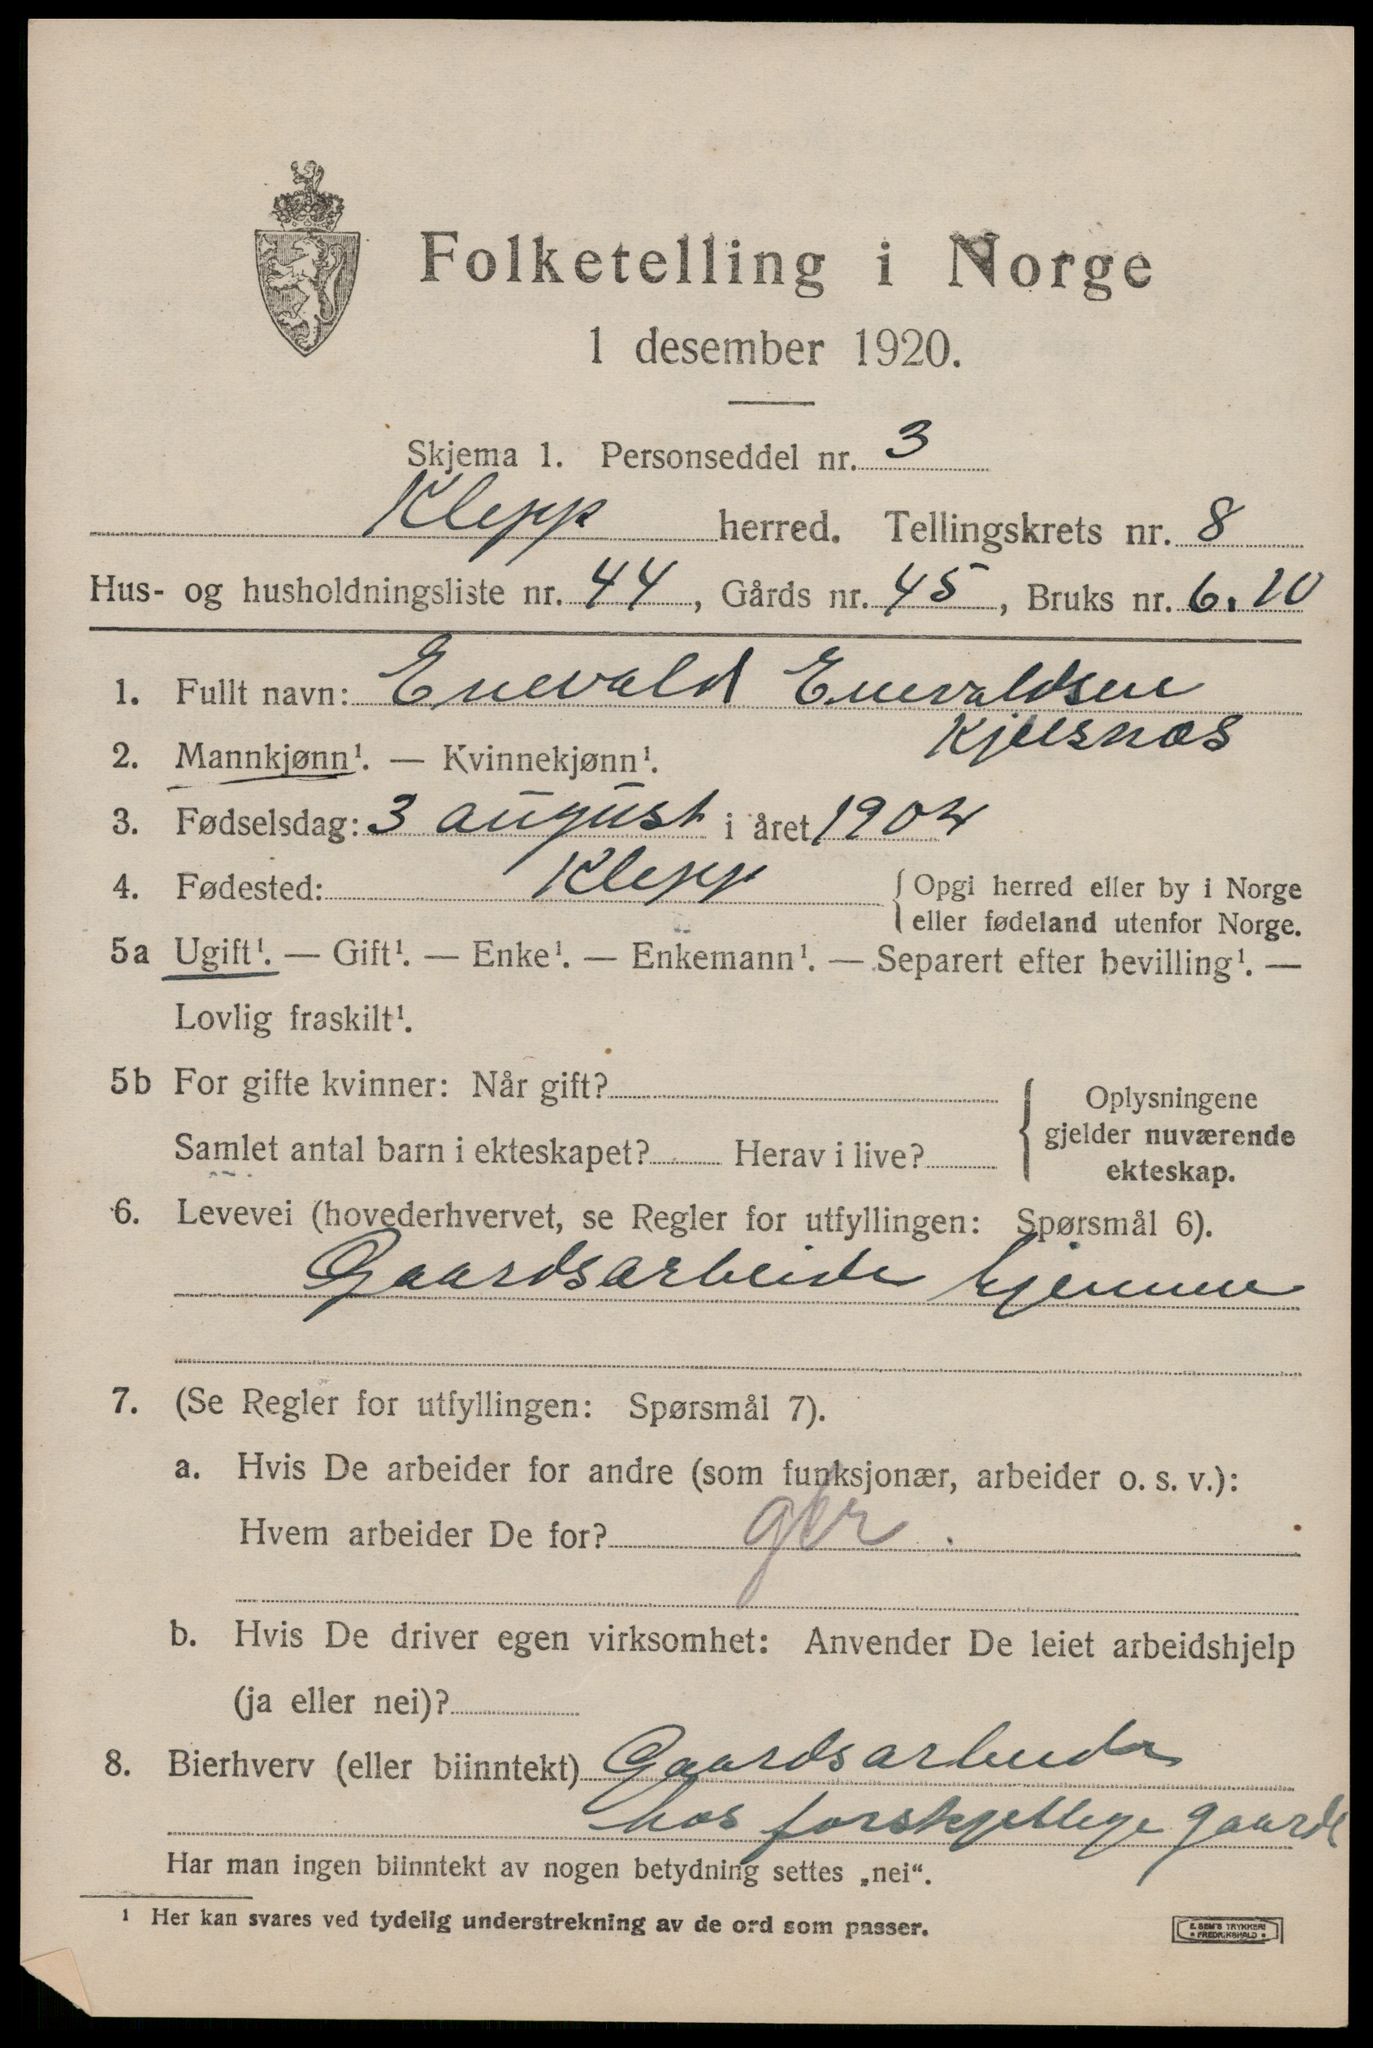 Folketelling i Norge
1 desember 1920.
Skjema 1. Personseddel nr. 3
Klepp herred. Tellingskrets nr. 8
Hus- og husholdningsliste nr. 44, Gårds nr. 45, Bruks nr. 6.10
1. Fullt navn: Enevald Enevaldsen
2. Mannkjønn¹. — Kvinnekjønn¹.
3. Fødselsdag: 3 august i året 1904
4. Fødested: Klepp { Opgi herred eller by i Norge
eller fødeland utenfor Norge.
5a Ugift¹. — Gift¹. — Enke¹. — Enkemann¹. — Separert efter bevilling¹. —
Lovlig fraskilt¹.
5b For gifte kvinner: Når gift? { Oplysningene
gjelder nuværende
Samlet antal barn i ekteskapet? Herav i live?
ekteskap.
6. Levevei (hovederhvervet, se Regler for utfyllingen: Spørsmål 6).
Gaardsarbeide hjemme
7. (Se Regler for utfyllingen: Spørsmål 7).
a. Hvis De arbeider for andre (som funksjonær, arbeider o. s. v.):
Hvem arbeider De for?
b. Hvis De driver egen virksomhet: Anvender De leiet arbeidshjelp
(ja eller nei)?
8. Bierhverv (eller biinntekt) Gaardsarbeide
hos forskjellige gaard
Har man ingen biinntekt av nogen betydning settes „nei“.
¹ Her kan svares ved tydelig understrekning av de ord som passer.
E. SEM'S TRYKKERI
* FREDRIKSHALD *